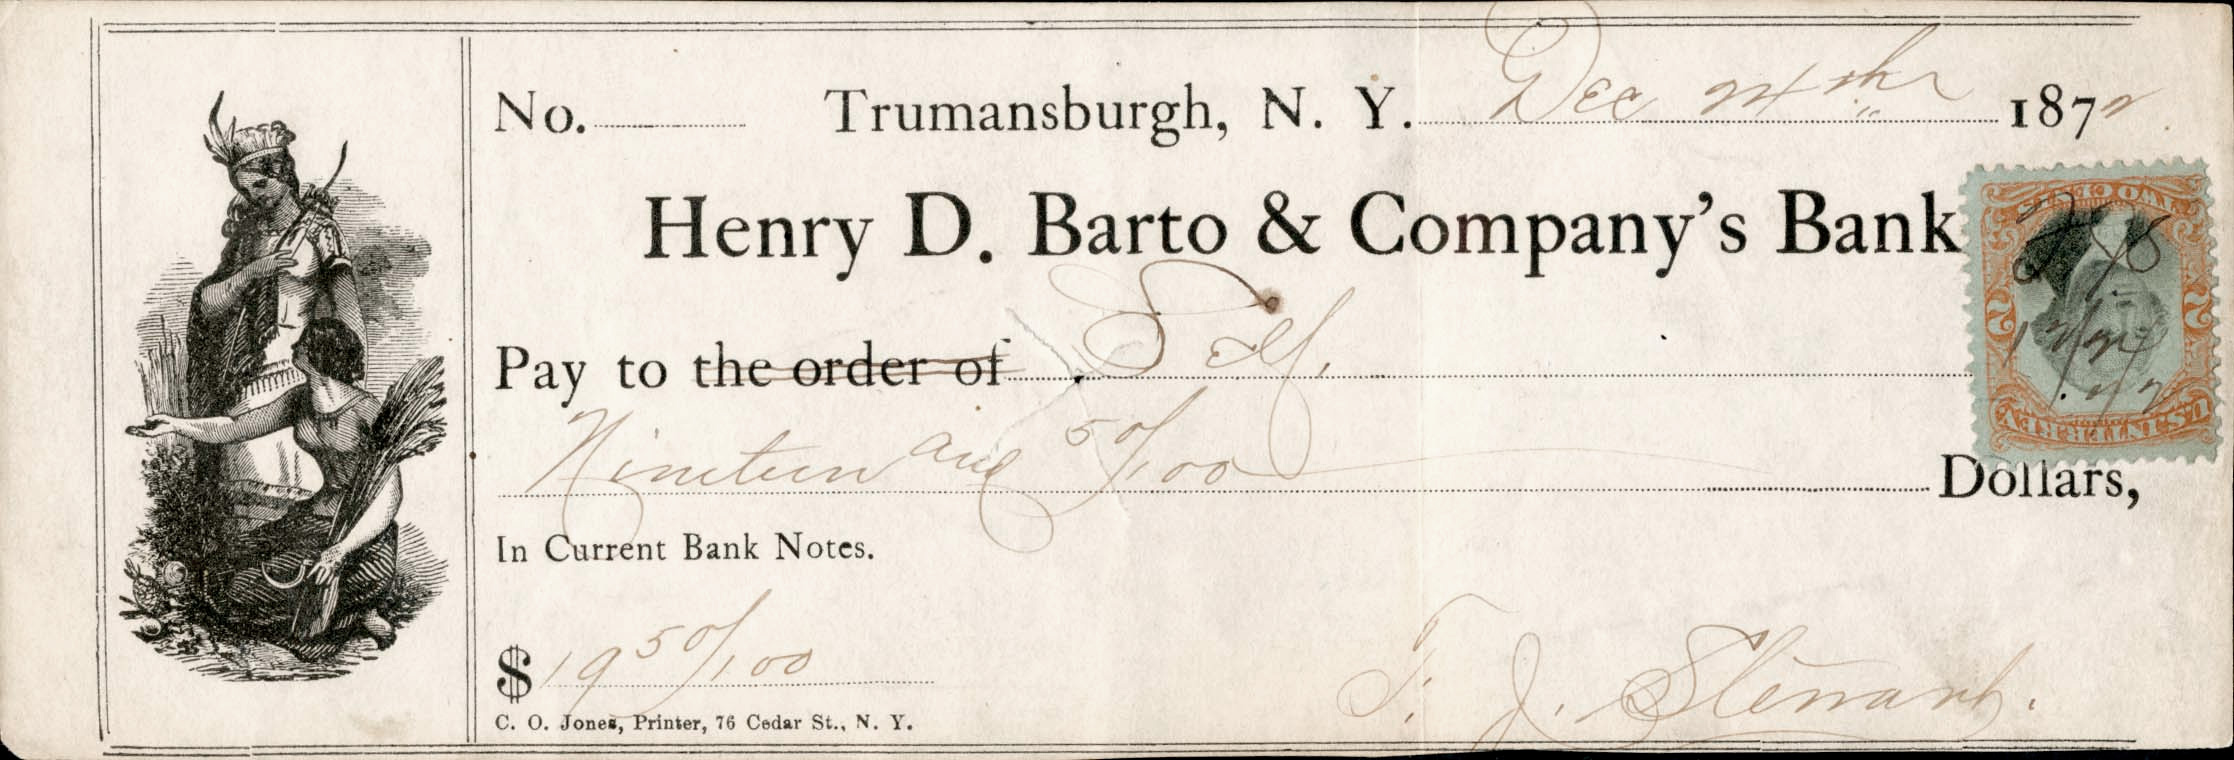 No. Trumansburgh, N. Y. Dec 24th 1872
Henry D. Barto & Company's Bank
Pay to the order of Self.
Nineteen and 50/100 Dollars,
In Current Bank Notes.
$19 50/100
T. J. Stewart.
C. O. Jones, Printer, 76 Cedar St., N. Y.
TWO CENTS
2 2
U.S. INTER. REV.